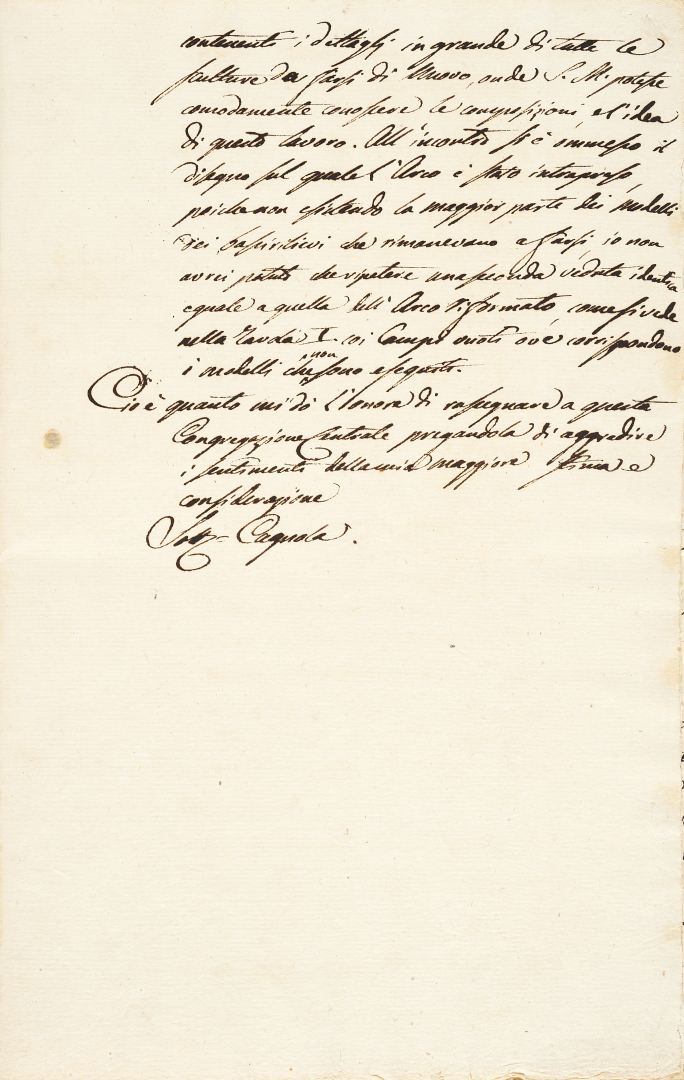 contenenti i dettaglj in grande di tutte le
sculture da farsi di Nuovo, onde S. M. potesse
comodamente conoscere le composizioni, e l'idea
di questo lavoro. All'incontro si è ommesso il
disegno sul quale l'Arco è stato intrapreso,
poiche non esistendo la maggior parte dei modelli
dei bassirilievi che rimanevano a farsi, io non
avrei potuto che ripetere una seconda veduta identica
eguale a quella dell'Arco riformato, come si vede
nella Tavola I. coi Campi vuoti ove corrispondono
i modelli che non sono eseguiti.
Ciò è quanto mi dò l'onore di rassegnare a questa
Congregazione Centrale pregandola di aggredire
i sentimenti della mia maggiore stima e
considerazione
Sott.= Cagnola.